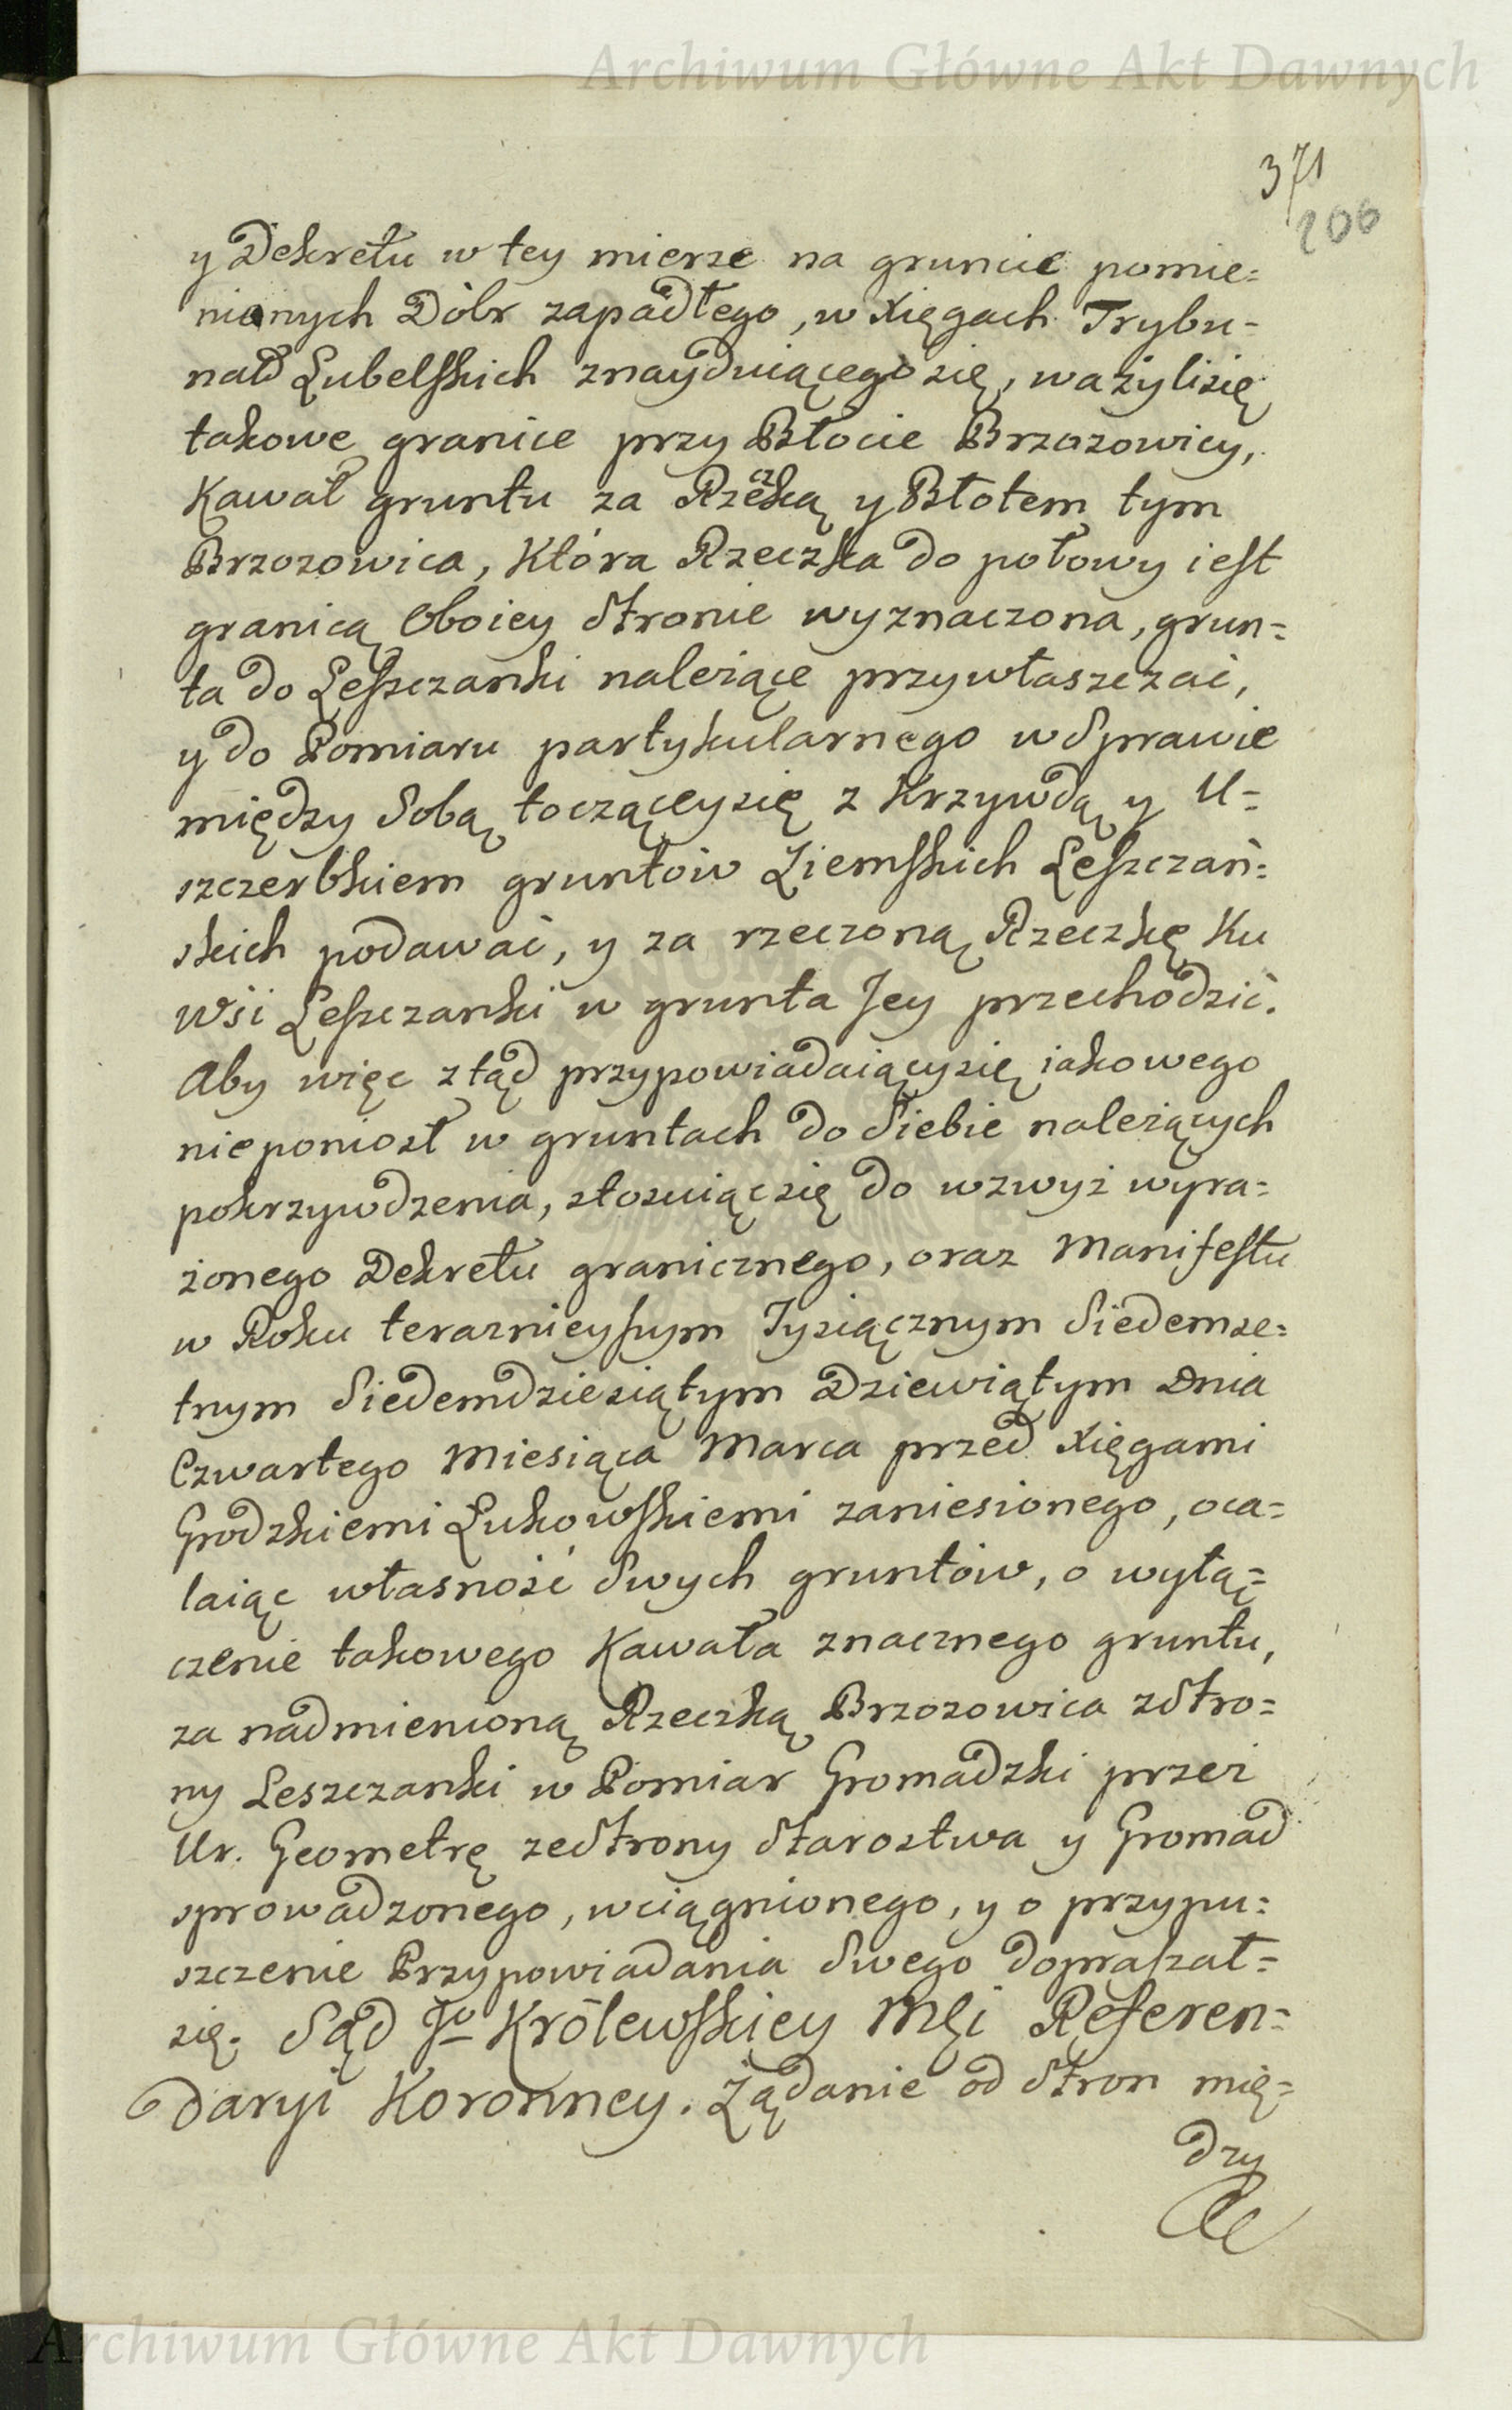 Archiwum Główne Akt Dawnych
371
200
y Dekretu w tey mierze na gruncie pomie=
nionych Dóbr zapadłego, w Xięgach Trybu=
nał Lubelskich znayduiącego się, ważyli się
takowe granice przy Błocie Brzozowicy,
Kawał gruntu za Rzeczką y Błotem tym
Brzozowica, Która Rzeczka do połowy iest
granicą Oboiey Stronie wyznaczona, grun=
ta do Leszczanki należące przywłaszczać,
y do Pomiaru partykularnego w Sprawie
między Sobą toczącey się z Krzywdą y U=
szczerbkiem gruntów Ziemskich Leszczań=
skich podawać, y za rzeczoną Rzeczkę Ku
Wsi Leszczanki w grunta Jey przechodzić.
Aby więc ztąd przypowiadaiący się iakowego
nie poniosł w gruntach do Siebie należących
pokrzywdzenia, stosuiąc się do wzwyż wyra=
żonego Dekretu granicznego, oraz Manifestu
w Roku teraznieyszym Tysiącznym Siedemse=
tnym Siedemdziesiątym Dziewiątym Dnia
Czwartego Miesiąca Marca przed Xięgami
Grodzkiemi Łukowskiemi zaniesionego, oca=
laiąc własność Swych gruntów, o wyłą=
czenie takowego Kawała znacznego gruntu,
za nadmienioną Rzeczką Brzozowica z Stro=
ny Leszczanki w Pomiar Gromadzki przez
Ur. Geometrę ze Strony Starostwa y Gromad
sprowadzonego, wciągnionego, y o przypu=
szczenie Przypowiadania Swego dopraszał=
się. Sąd Jo Królewskiey Mci Referen=
daryi Koronney. Żądanie od Stron mię=
dzy
Archiwum Główne Akt Dawnych